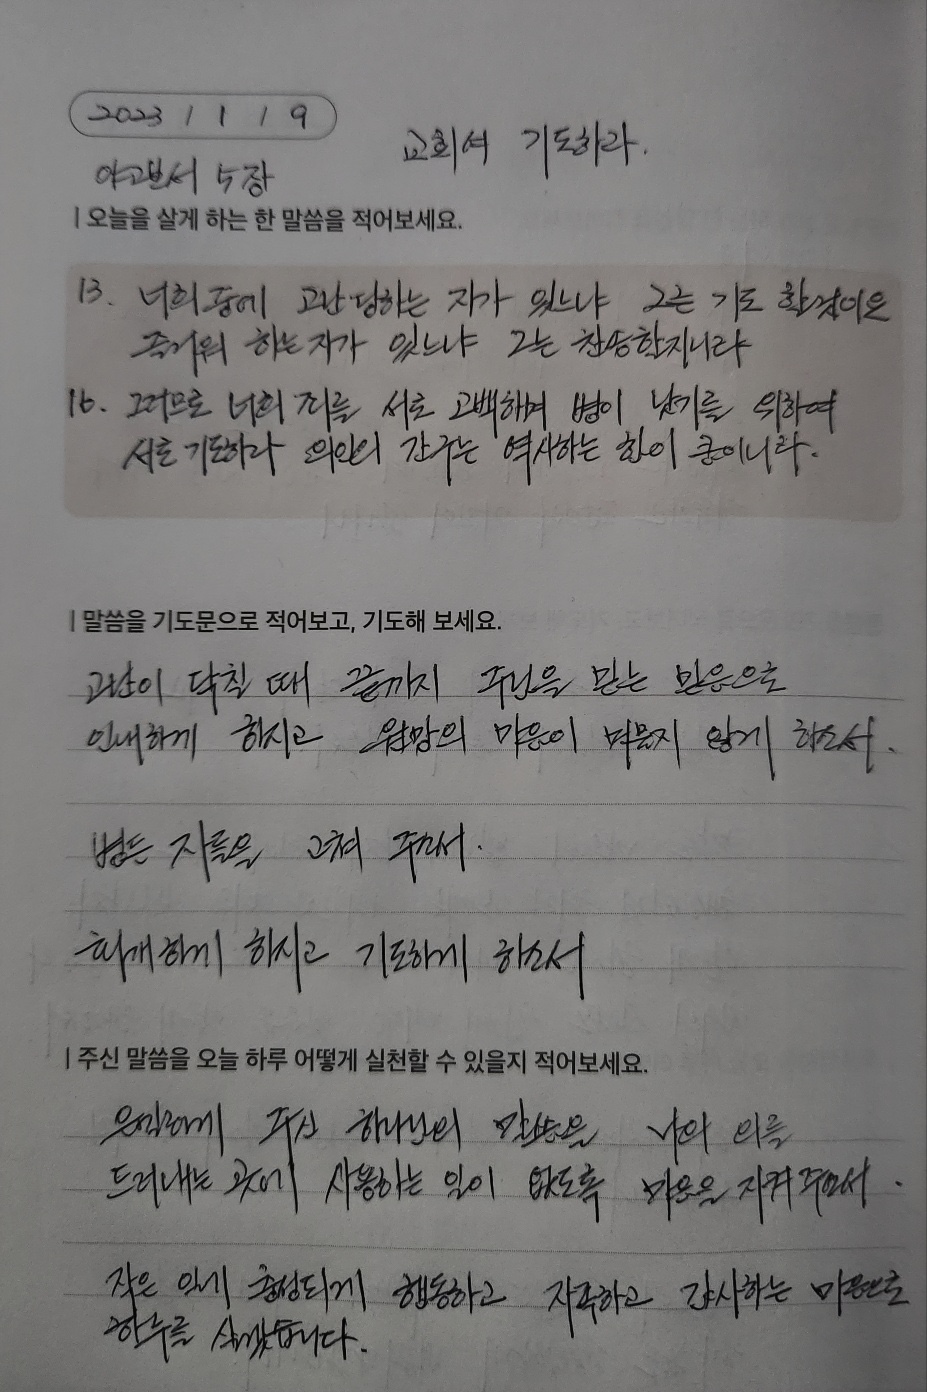 2023 / 1 / 19
교회여 기도하라.
야고보서 5장
| 오늘을 살게 하는 한 말씀을 적어보세요.
13. 너희중에 고난당하는 자가 있느냐 그는 기도 할것이요
즐거워 하는자가 있느냐 그는 찬송할지니라
16. 그러므로 너희 죄를 서로 고백하며 병이 낫기를 위하여
서로 기도하라 의인의 간구는 역사하는 힘이 큼이니라.
| 말씀을 기도문으로 적어보고, 기도해 보세요.
고난이 닥칠 때 끝까지 주님을 믿는 믿음으로
인내하게 하시고 원망의 마음이 머물지 않게 하소서.
병든 자들을 고쳐 주소서.
회개하게 하시고 기도하게 하소서
| 주신 말씀을 오늘 하루 어떻게 실천할 수 있을지 적어보세요.
주신 하나님의 말씀을 나의 의를
드러내는 곳에 사용하는 일이 없도록 마음을 지켜주소서.
작은 일에 충성되게 행동하고 자족하고 감사하는 마음으로
하루를 살겠습니다.